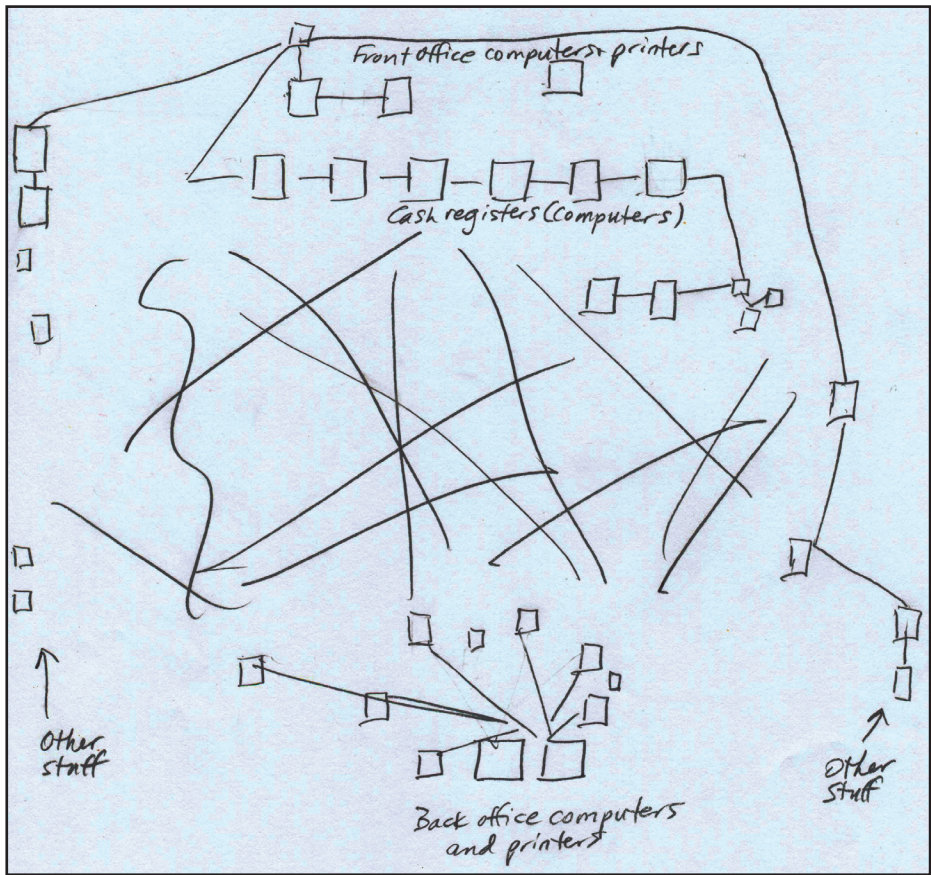 Front office computers + printers
Cash registers (computers)
Other
stuff
Other
stuff
Back office computers
and printers